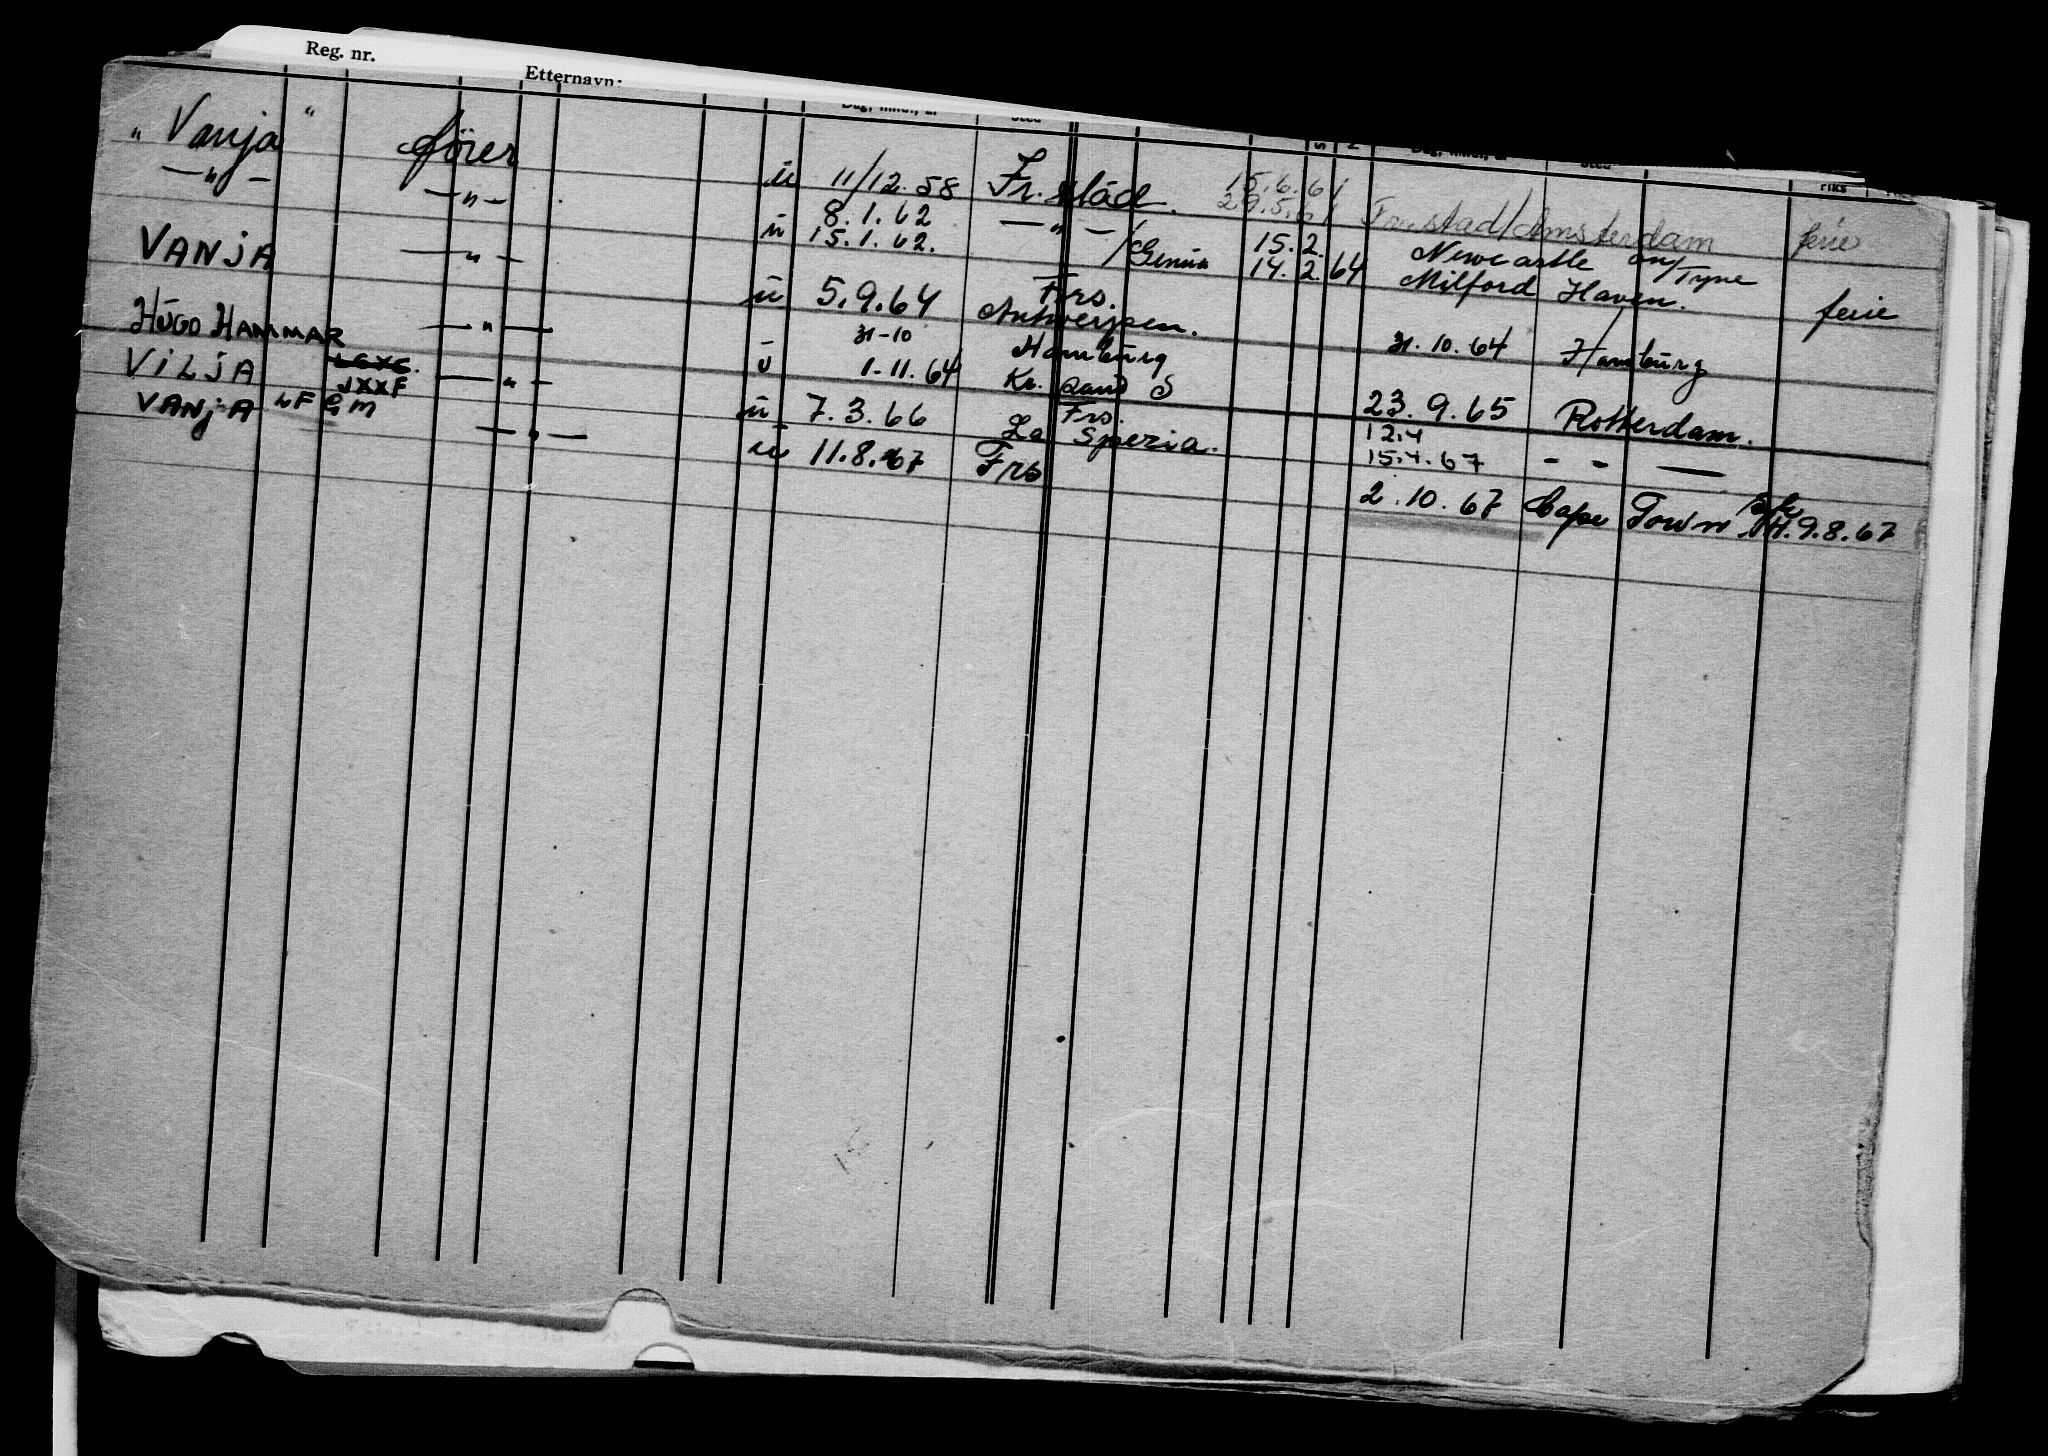 Reg. nr.
Etternavn:
" Vanja " fører ü 11/12. 58 Fr.stad. 15.6.61 Fr.stad/Amsterdam ferie
29.5.61
— " — — " — ü 8.1.62 — " — 15.2. Newcastle on/Tyne
15.1.62. /Genua 14.2.64 Milford Haven. ferie
VANJA — " — ü 5.9.64 Frs.
Antwerpen. 31.10.64 Hamburg
HUGO HAMMAR — " — 31-10 Hamburg
1-11.64 Kr. sand S 23.9.65 Rotterdam.
VILJA JXXF — " — ü 7.3.66 Frs. 12.4
La Spezia. 15.4.67 - - —
VANJA LFGM — " — ü 11.8.67 Frs 2.10.67 Cape Town 9.8.67